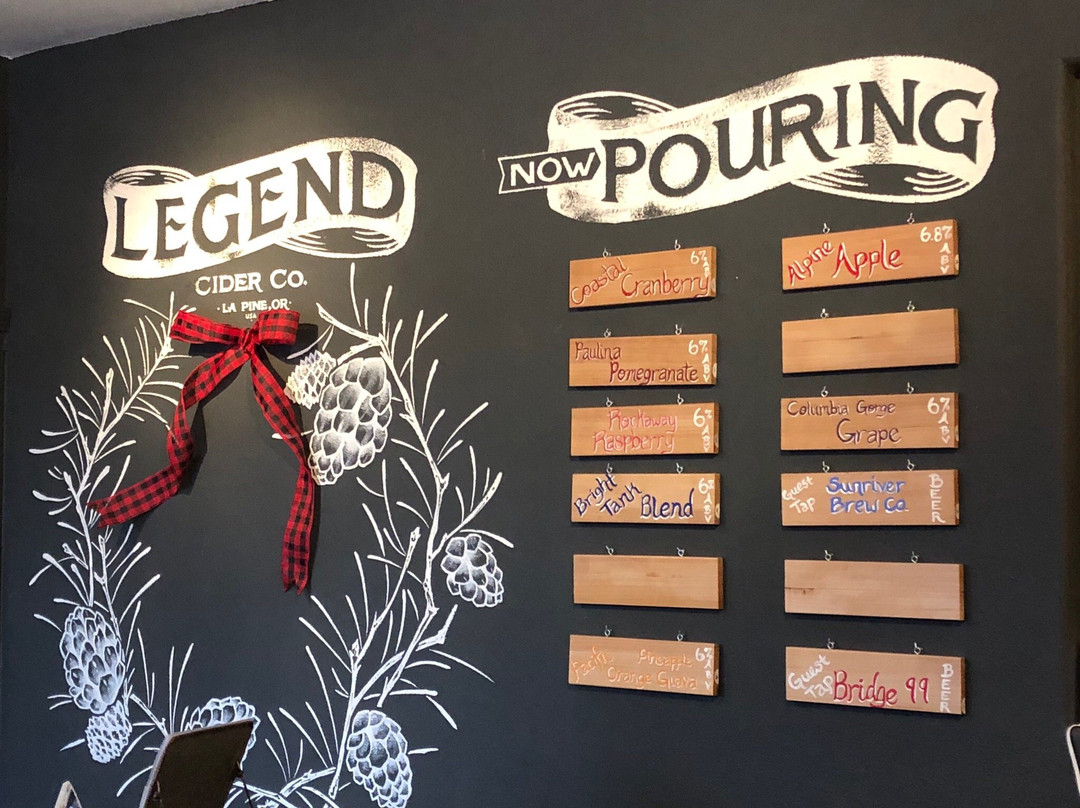 LEGEND
CIDER CO.
· LA PINE, OR ·
USA
NOW POURING
Coastal Cranberry 6% ABV
Paulina
Pomegranate 6% ABV
Rockaway
Raspberry 6% ABV
Bright
Tank Blend 6% ABV
Pacific Pineapple
Orange Guava 6% ABV
Alpine Apple 6.8% ABV
Columbia Gorge
Grape 6% ABV
Guest Tap
Sunriver
Brew Co.
BEER
Guest Tap
Bridge 99
BEER